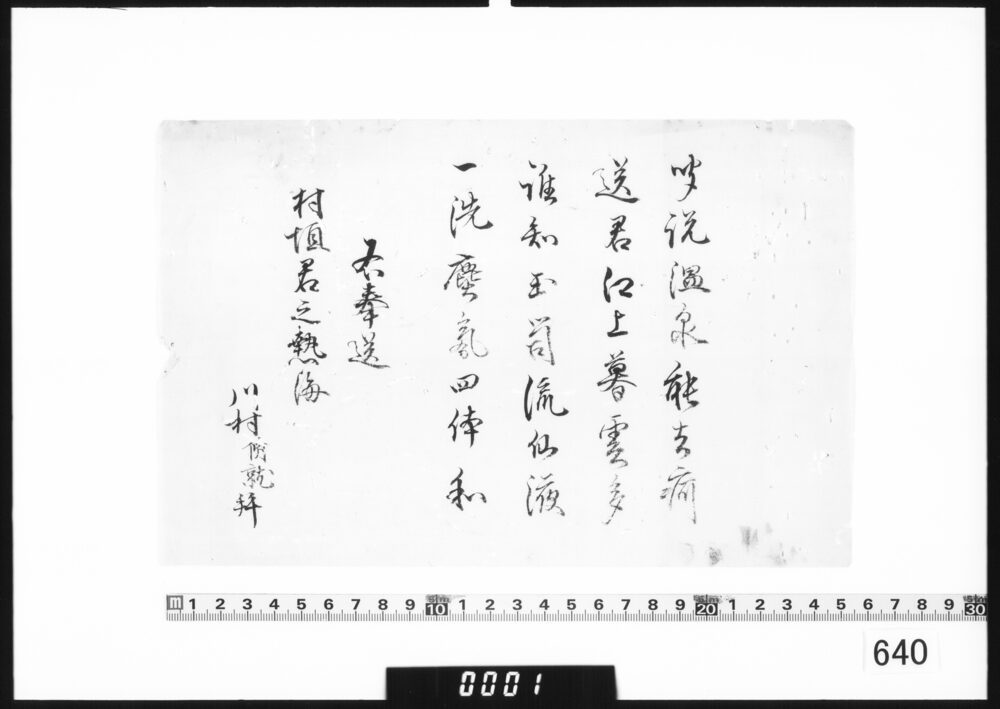 説温泉能去痾
送君江上暮雲多
誰知玉筒流仙液
一洗塵氛四体和
右奉送
村垣君之熱海
川村就拜
m 1 2 3 4 5 6 7 8 9 10 1 2 3 4 5 6 7 8 9 20 1 2 3 4 5 6 7 8 9 30
640
0001